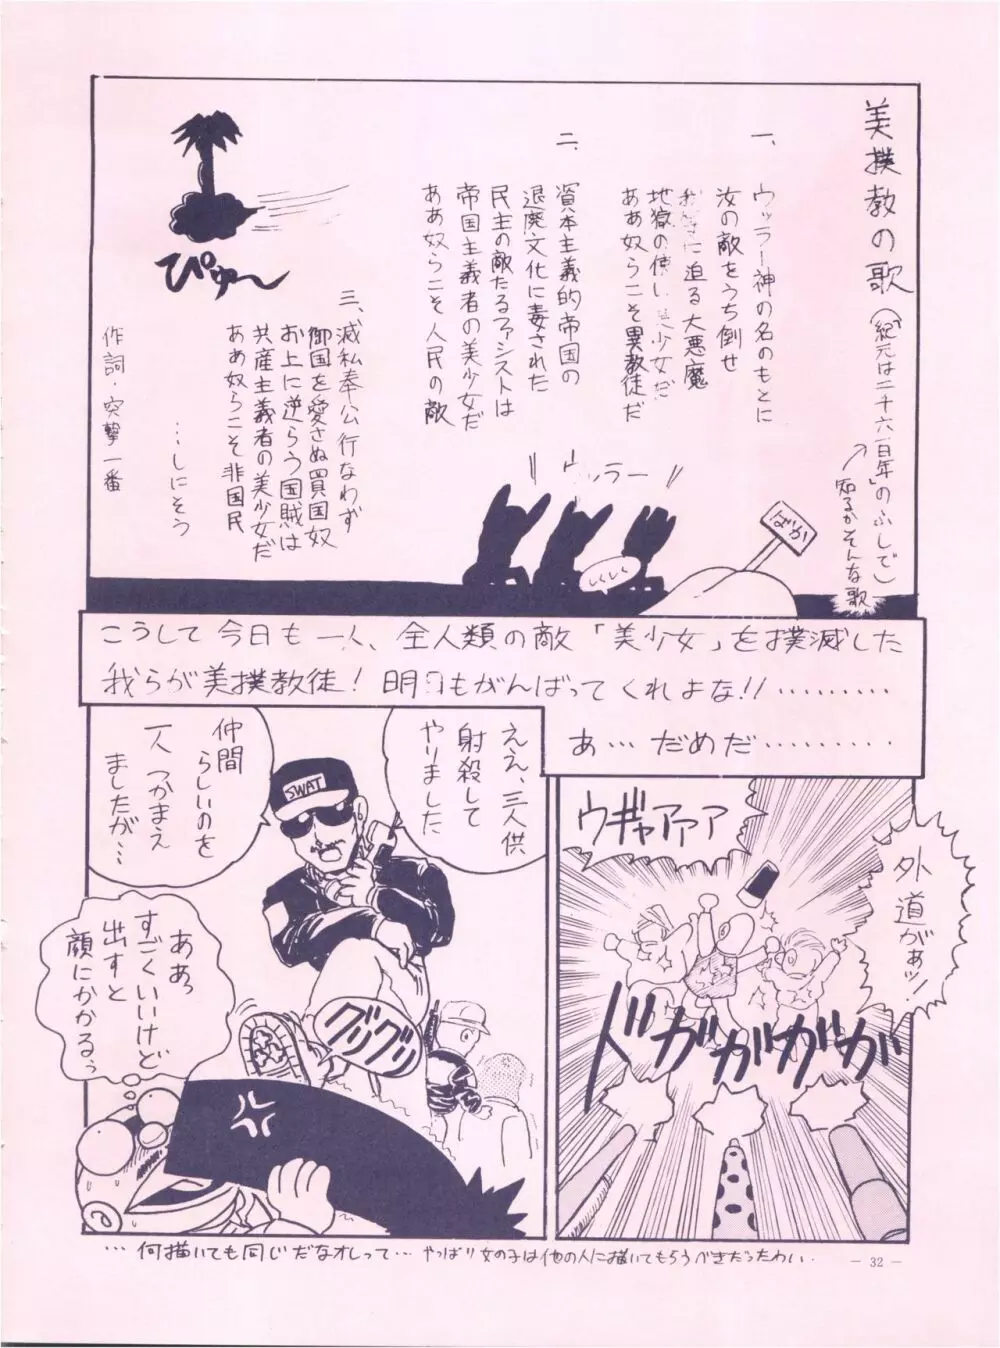 美撲教の歌
(「紀元は二千六百年」のふしで)
↗知るかそんな歌
一、
ウッラー神の名のもとに
汝の敵をうち倒せ
に迫る大悪魔
地獄の使い美少女だ
ああ奴らこそ異教徒だ
二、
資本主義的帝国の
退廃文化に毒された
民主の敵たるファシストは
帝国主義者の美少女だ
ああ奴らこそ人民の敵
三、
滅私奉公行なわず
御国を愛さぬ買国奴
お上に逆らう国賊は
共産主義者の美少女だ
ああ奴らこそ非国民
…しにそう
作詞・突撃一番
ぴゅ〜
ウッラー
しくしく
ばか
こうして今日も一人、全人類の敵「美少女」を撲滅した
我らが美撲教徒！明日もがんばってくれよな!!………
あ…だめだ………
ええ、三人供
射殺して
やりました
仲間
らしいのを
一人つかまえ
ましたが…
SWAT
グリグリ
ああっ
すごくいいけど
出すと
顔にかかるぅ
外道がぁッ！
ウギャアァァ
ドガガガガガ
…何描いても同じだなオレって…やっぱり女の子は他の人に描いてもらうべきだったわい.
— 32 —